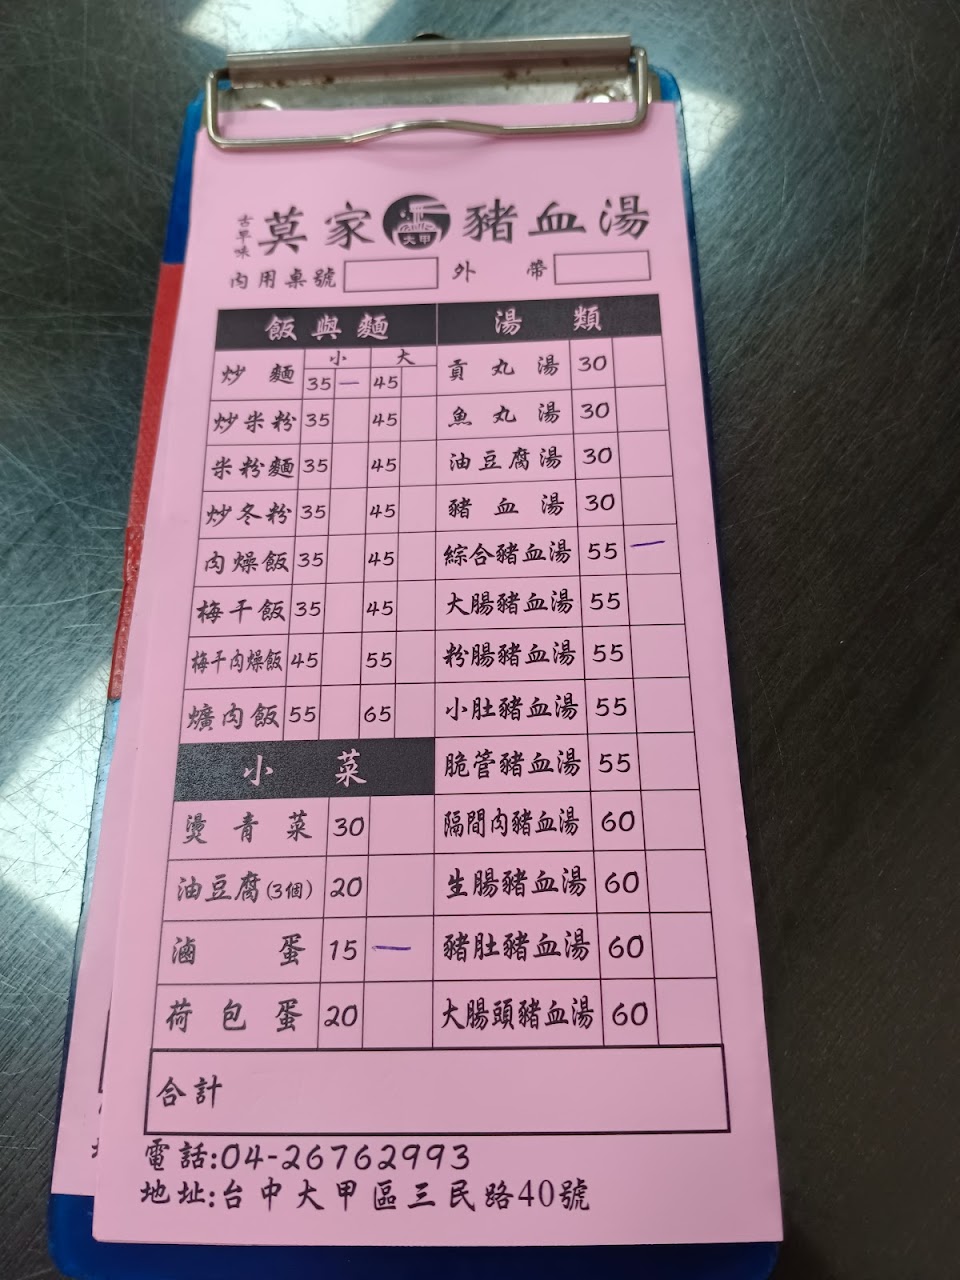 古早味 莫家 大甲 豬血湯
內用桌號 外帶
飯與麵 湯類
小 大
炒麵 35 一 45 貢丸湯 30
炒米粉 35 45 魚丸湯 30
米粉麵 35 45 油豆腐湯 30
炒冬粉 35 45 豬血湯 30
肉燥飯 35 45 綜合豬血湯 55 一
梅干飯 35 45 大腸豬血湯 55
梅干肉燥飯 45 55 粉腸豬血湯 55
爌肉飯 55 65 小肚豬血湯 55
小菜 脆管豬血湯 55
燙青菜 30 隔間肉豬血湯 60
油豆腐(3個) 20 生腸豬血湯 60
滷蛋 15 一 豬肚豬血湯 60
荷包蛋 20 大腸頭豬血湯 60
合計
電話:04-26762993
地址:台中大甲區三民路40號